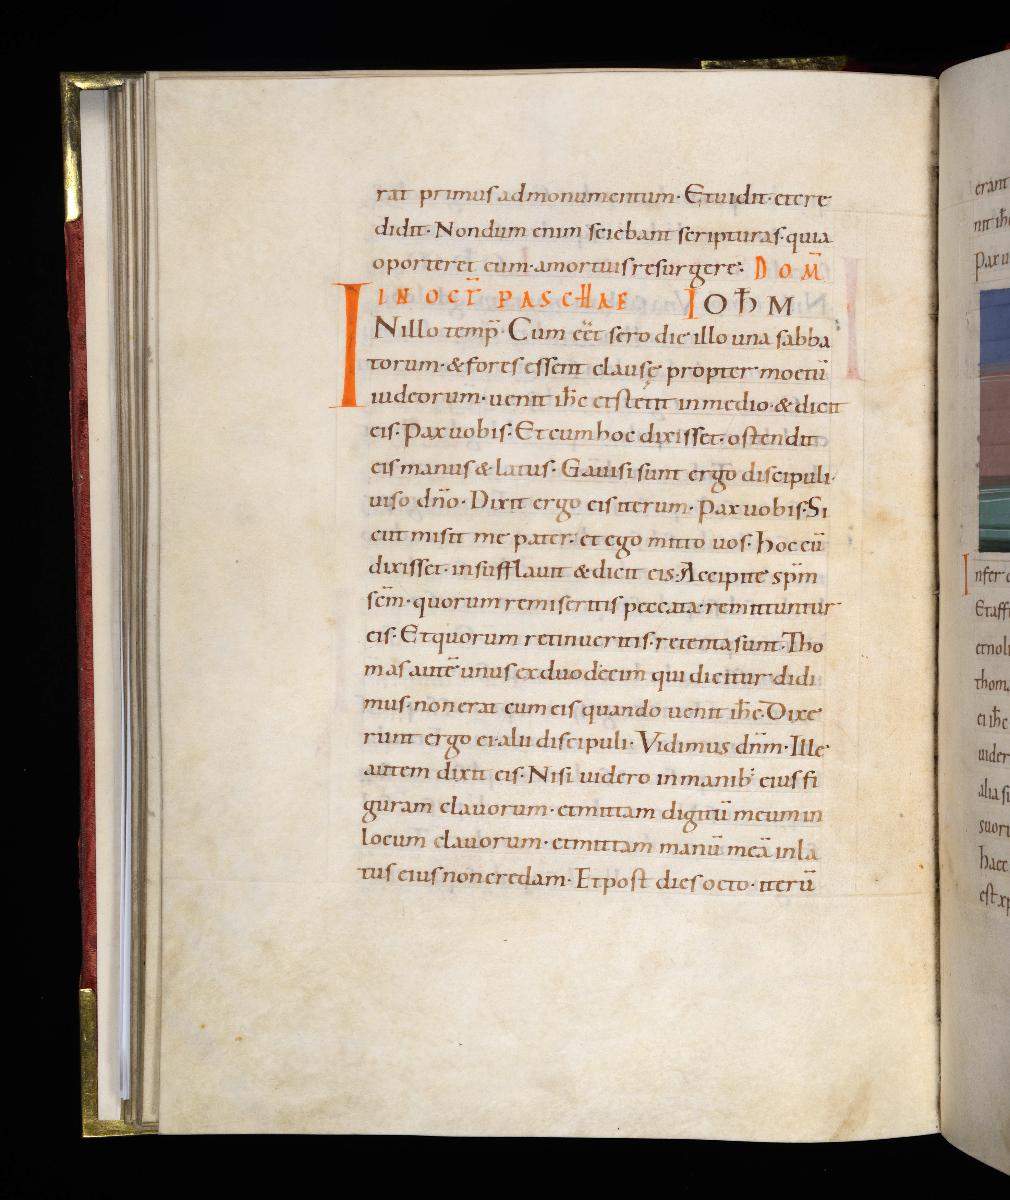 rat primus ad monumentum· Et uidit· et cre
didit· Nondum enim sciebant scripturas· quia
oporteret eum· a mortuis resurgere· DOM̄
IN OCT̄ PASCHAE IOH̄M
INillo temp̄· Cum eēt sero die illo una sabba
torum· & fores essent clausę propter moetū
iudeorum· uenit ih̄c et stetit in medio· & dicit
eis· Pax uobis· Et cum hoc dixisset· ostendit
eis manus & latus· Gauisi sunt ergo discipuli·
uiso dn̄o· Dixit ergo eis iterum· Pax uobis· Si
cut misit me pater· et ego mitto uos· Hoc cū
dixisset· insufflauit & dicit eis· Accipite sp̄m
sc̄m· quorum remiseritis peccata· remittuntur
eis· Et quorum retinueritis· retenta sunt· Tho
mas autē unus ex duodecim qui dicitur didi
mus· non erat cum eis quando uenit ih̄c· Dixe
runt ergo ei· alii discipuli· Vidimus dn̄m· Ille
autem dixit eis· Nisi uidero in manib; eius fi
guram clauorum· et mittam digitū meum in
locum clauorum· et mittam manū meā in la
tus eius non credam· Et post dies octo· iterū
erant
nit ih̄c
Pax u
Infer
Et aff
et noli
thom
ei ih̄c
uider
alia si
suoru
haec
est xp